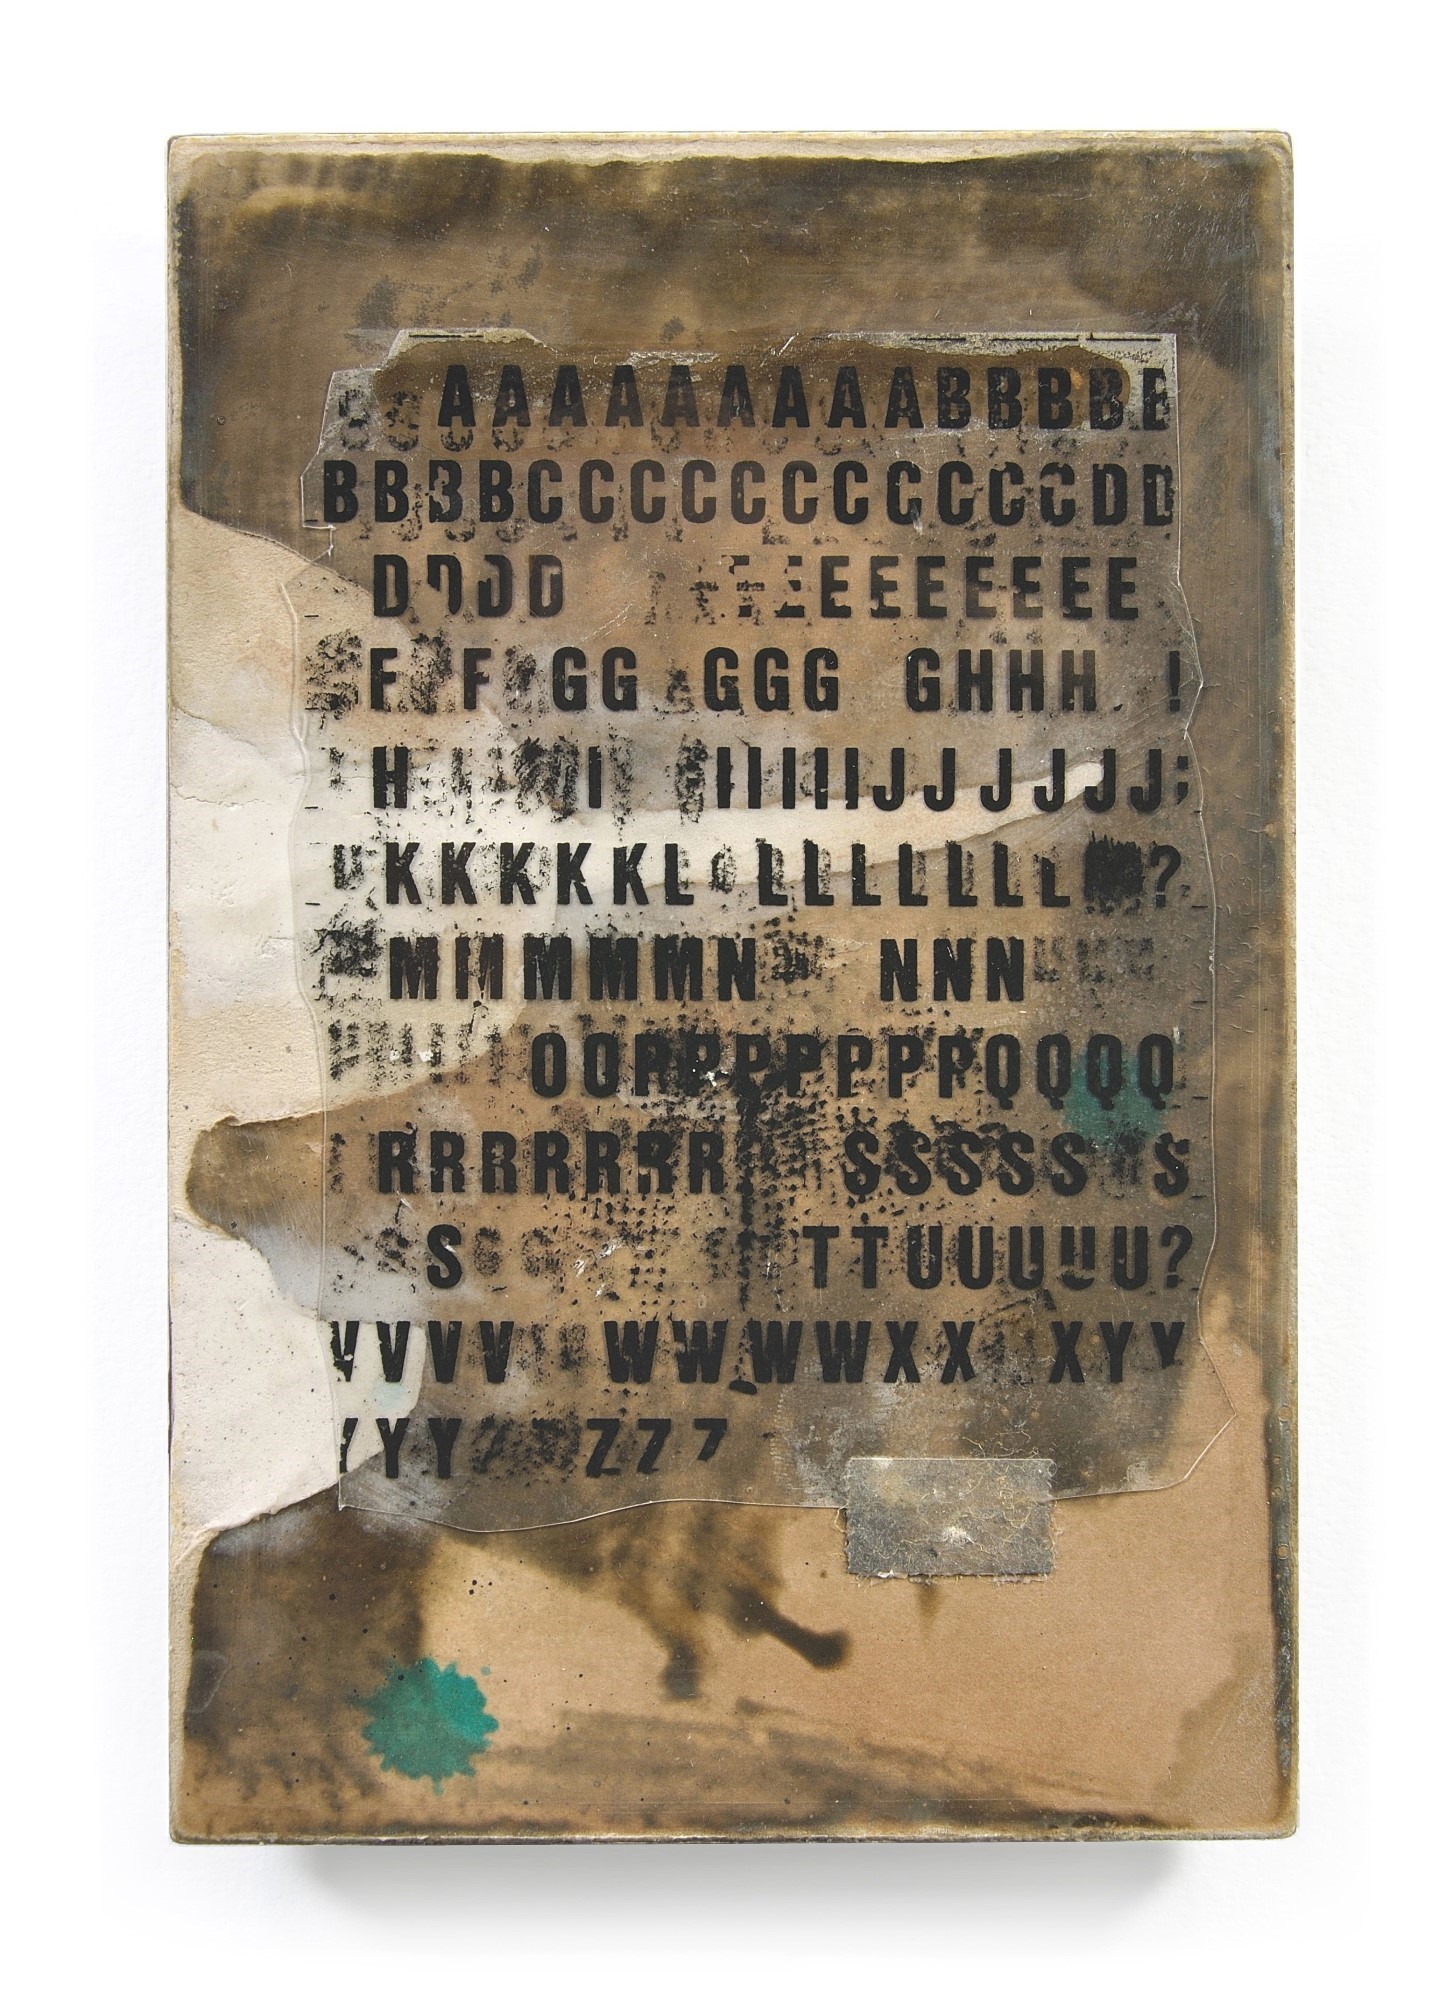 AAAAAAAAABBBBB
BBBBCCCCCCCCCCCDD
DDDD EEEEEEEE
F F GG GGG GHHH !
H I IIIIIJJJJJJ;
KKKKKL LLLLLLL ?
MMMMMN NNN
OOPPPPPPPQQQQ
RRRRRRR SSSSS S
S TTUUUUU?
VVVV WWWWXX XYY
YYY ZZZ